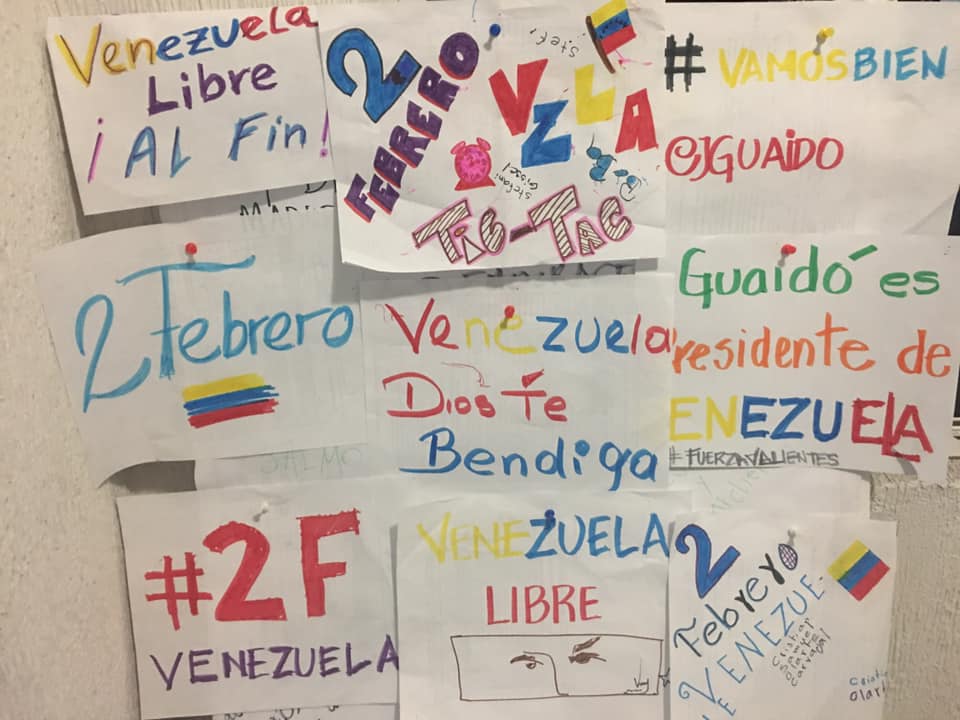 Venezuela
Libre
¡Al Fin!
2
FEBRERO
Stefi
VZLA
Stefani
Gissel
TIC-TAC
#VAMOSBIEN
@JGUAIDO
2 Febrero
Venezuela
Dios Te
Bendiga
Guaidó es
residente de
ENEZUELA
#FUERZAVALIENTES
SALMO
#2F
VENEZUELA
VENEZUELA
LIBRE
2
Febrero
VENEZUE-
Olarte
Carvajal